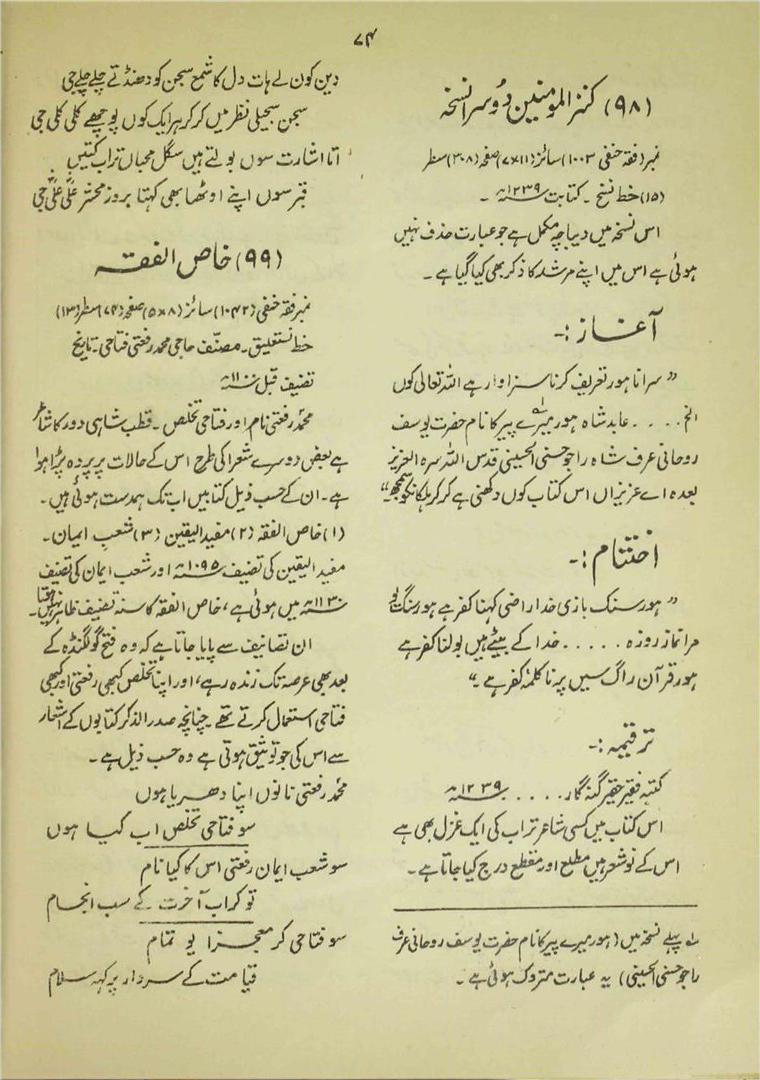 ۷۴
(۹۸) کنز المومنین دُوسرا نسخہ
نمبر (فقہ حنفی ۱۰۰۳) سائز (۱۱×۷) صفحہ (۳۰۸) سطر
(۱۵) خط نسخ ۔ کتابت ۱۲۳۹ھ ۔
اس نسخہ میں دیباچہ مکمل ہے جو عبارت حذف نہیں
ہوئی ہے اس میں اپنے مرشد کا ذکر بھی کیا گیا ہے ۔
آغاز :۔
” سرانا ہور تعریف کرنا سزاوار ہے اللہ تعالی کوں
الخ .... عابد شاہ ہور میرے پیر کا نام حضرت یوسف
روحانی عرف شاہ راجو حسنی الحسینی قدس اللہ سرہ العزیز
بعدہ اے عزیزاں اس کتاب کوں دکھنی ہے کر کر ہلکا نکو سمجھ “
اختتام :۔
” ہور سنک بازی خدا راضی کہنا کفر ہے ہور سنگت یو
مرا نماز روزہ ..... خدا کے بیٹے ہیں بولنا کفر ہے
ہور قرآن راگ سیں پرنا کلمۂ کفر ہے ۔“
ترقیمہ :۔
کتبہ فقیر حقیر گنہ گار .... ۱۲۳۹ھ
اس کتاب میں کسی شاعر تراب کی ایک غزل بھی ہے
اس کے نو شعر ہیں مطلع اور مقطع درج کیا جاتا ہے ۔
لہ پہلے نسخہ میں (ہور میرے پیر کا نام حضرت یوسف روحانی عرف
راجو حسنی الحسینی) یہ عبارت متروک ہوئی ہے ۔
دین کون لے ہات دل کا شمع سجن کو دھنڈتے چلے چلے جی
سجن سجیلی نظر میں کر کر ہر ایک کوں پوچھے گلی گلی جی
اتا اشارت سوں بولتے ہیں سگل محباں تراب کتیں
قبر سوں اپنے اوٹھا بھی کہتا بروز محشر علی علی جی
(۹۹) خاص الفقہ
نمبر فقہ حنفی (۱۰۴۲) سائز (۸×۵) صفحہ (۷۴) سطر (۱۳)
خط نستعلیق ۔ مصنّف حاجی محمد رفعتی فتاحی ۔ تاریخ
تصنیف قبل ۱۱۰۰ھ
محمد رفعتی نام اور فتاحی تخلص ۔ قطب شاہی دور کا شاعر
ہے بعض دوسرے شعرا کی طرح اس کے حالات پر پردہ پڑا ہوا
ہے ۔ ان کے حسب ذیل کتابیں اب تک ہمدست ہوئی ہیں ۔
(۱) خاص الفقہ (۲) مفید الیقین (۳) شعب ایمان ۔
مفید الیقین کی تصنیف ۱۰۹۵ھ اور شعب ایمان کی تصنیف
۱۱۳۰ھ میں ہوئی ہے ، خاص الفقہ کا سنہ تصنیف ظاہر نہیں ہوتا ۔
ان تصانیف سے پایا جاتا ہے کہ وہ فتح گولکنڈہ کے
بعد بھی عرصہ تک زندہ رہے ، اور اپنا تخلص کبھی رفعتی اور کبھی
فتاحی استعمال کرتے تھے چنانچہ صدر الذکر کتابوں کے اشعار
سے اس کی جو توثیق ہوتی ہے وہ حسب ذیل ہے ۔
محمد رفعتی نانوں اپنا دھریا ہوں
سو فتاحی تخلص اب کیا ہوں
سو شعب ایمان رفعتی اس کا کیا نام
تو کراب آخرت کے سب انجام
سو فتاحی کر معجزا یو تمام
قیامت کے سردار پر کہہ سلام